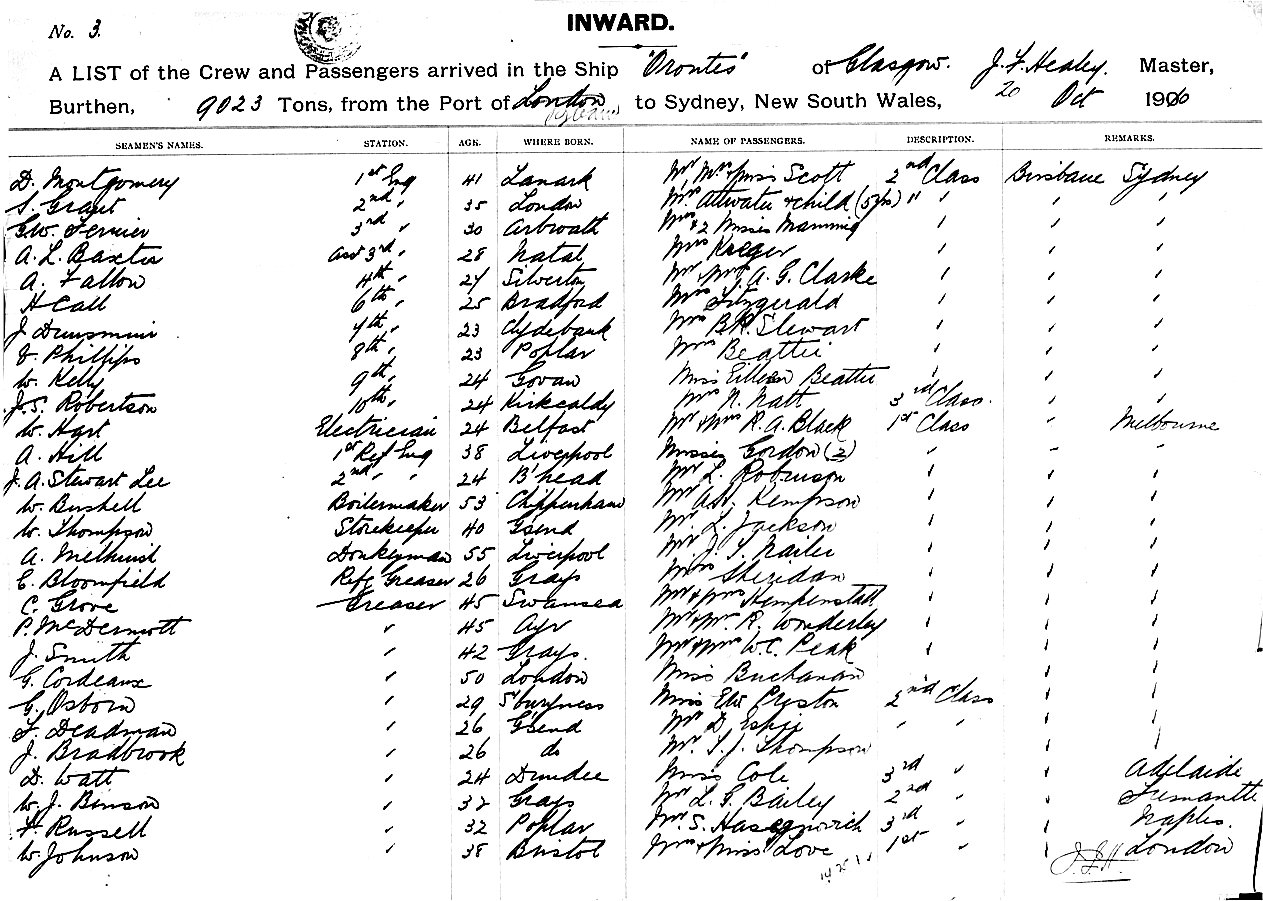 No. 3.
INWARD.
A LIST of the Crew and Passengers arrived in the Ship "Orontes" of Glasgow. J. F. Healey. Master,
Burthen, 9023 Tons, from the Port of London to Sydney, New South Wales, 20 Oct 1906
SEAMEN'S NAMES. STATION. AGE. WHERE BORN. NAME OF PASSENGERS. DESCRIPTION. REMARKS.
D. Montgomery 1st Eng 41 Lanark Mr Mrs & Miss Scott 2nd Class Brisbane Sydney
S. Grant 2nd " 35 London Mrs Attwater & child (5yrs) " " " "
G.W. Ferrier 3rd " 30 Arbroath Mrs & 2 Misses Manning " " "
A. L. Baxter Asst 3rd " 28 Natal Mrs Kreger " " "
A. Fallon 4th " 27 Silverton Mr & Mrs A. G. Clarke " " "
H Call 6th " 25 Bradford Mrs Fitzgerald " " "
J Dunsmuir 7th " 23 Clydebank Mrs B.R. Stewart " " "
Phillips 8th " 23 Poplar Mrs Beattie " " "
W. Kelly 9th " 24 Govan Miss Eilleen Beattie " " "
J.S. Robertson 10th " 24 Kirkcaldy Mrs N. Natt 3rd Class. " "
W. Hart Electrician 24 Belfast Mr & Mrs R. A. Black 1st Class " Melbourne
A. Hill 1st Ref Eng 38 Liverpool Misses Gordon (2) " " "
J. A. Stewart Lee 2nd " " 24 B'head Mr L. Robinson " " "
W. Bushell Boilermaker 53 Chippenham Mr Kempson " " "
W. Thompson Storekeeper 40 Gsend Mr L. Jackson " " "
A. Melhuish Donkeyman 55 Liverpool Mr J. T. Nailer " " "
E. Bloomfield Refg Greaser 26 Grays Miss Sheridan " " "
C. Grove Greaser 45 Swansea Mr & Mrs Hempenstall " " "
P. McDermott " 45 Ayr Mr & Mrs R. Wonderley " " "
J. Smith " 42 Grays. Mr & Mrs W.C. Peak " " "
G. Cordeaux " 50 London Miss Buchanan " " "
G. Osborn " 29 S'buryness Miss Preston 2nd Class " "
F. Deadman " 26 Gsend Mr D. Espie " " " "
J. Bradbrook " 26 do Mr. T. J. Thompson " "
D. Watt " 24 Dundee Miss Cole 3rd " " Adelaide
W. J. Binson " 32 Grays Mr L. G. Bailey 2nd " " Fremantle
F. Russell " 32 Poplar Mr. S. Hasegnovich 3rd " " Naples.
W Johnson " 38 Bristol Mrs & Miss Love 1st " " London
J.F.H.